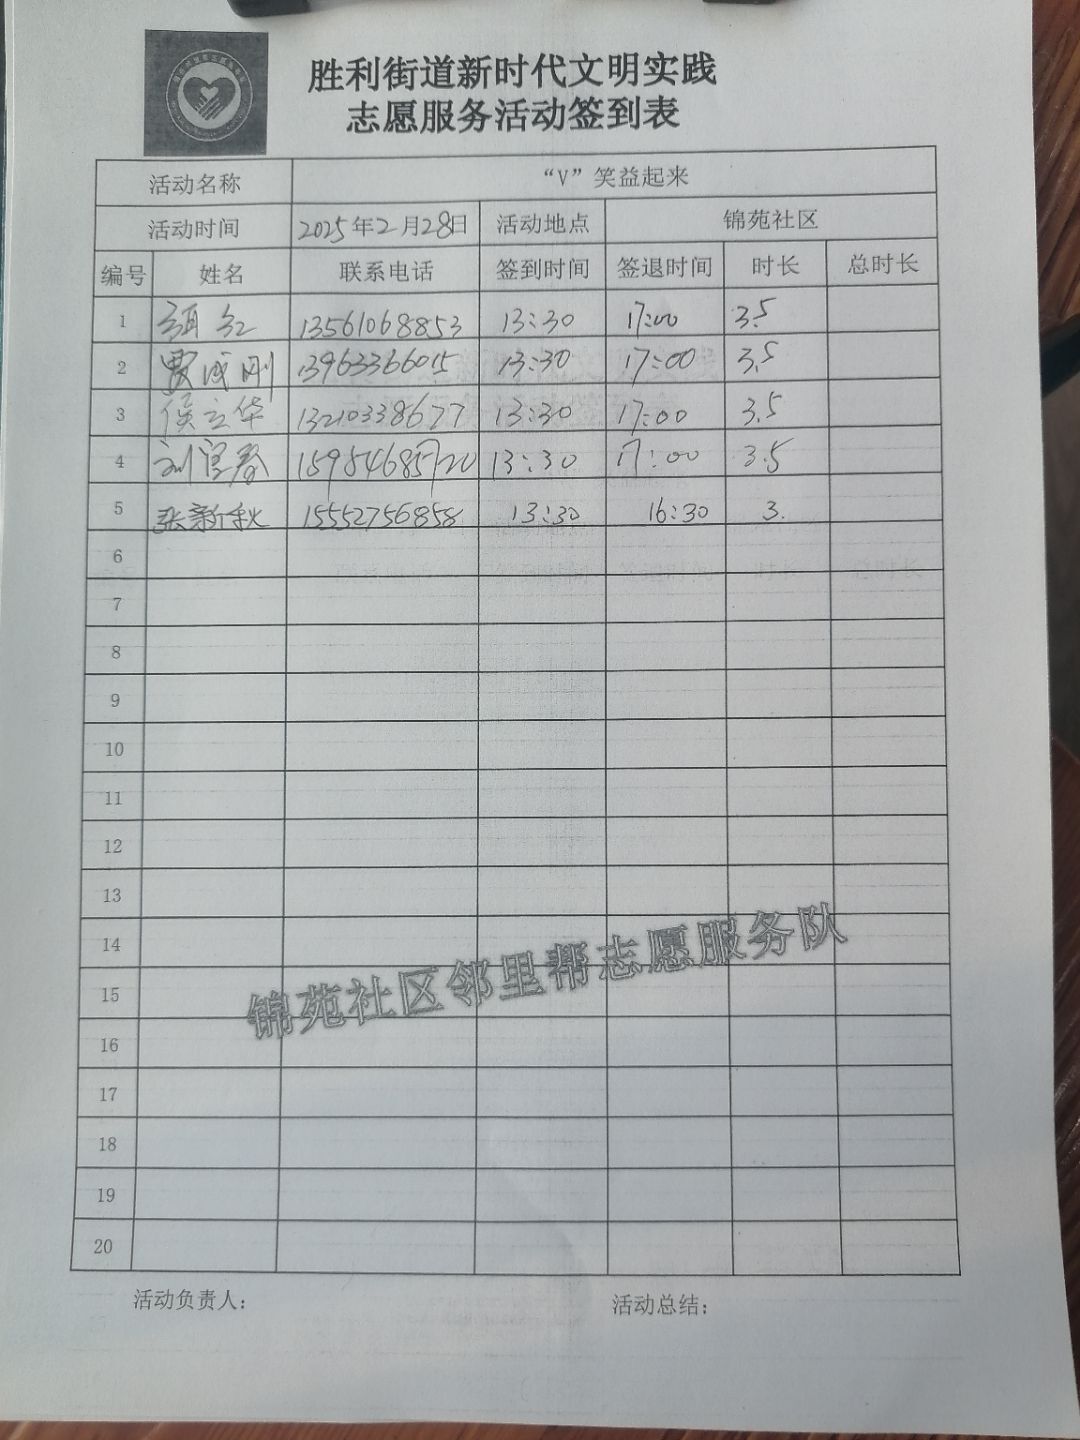 胜利街道新时代文明实践
志愿服务活动签到表
活动名称 “V”笑益起来
活动时间 2025年2月28日 活动地点 锦苑社区
编号 姓名 联系电话 签到时间 签退时间 时长 总时长
1 红 13561068853 13:30 17:00 3.5
2 贾成刚 13963366015 13:30 17:00 3.5
3 侯立华 13210338677 13:30 17:00 3.5
4 刘春 15954685720 13:30 17:00 3.5
5 张新秋 15552756858 13:30 16:30 3.
6
7
8
9
10
11
12
13
14
15
16
17
18
19
20
锦苑社区邻里帮志愿服务队
活动负责人： 活动总结：